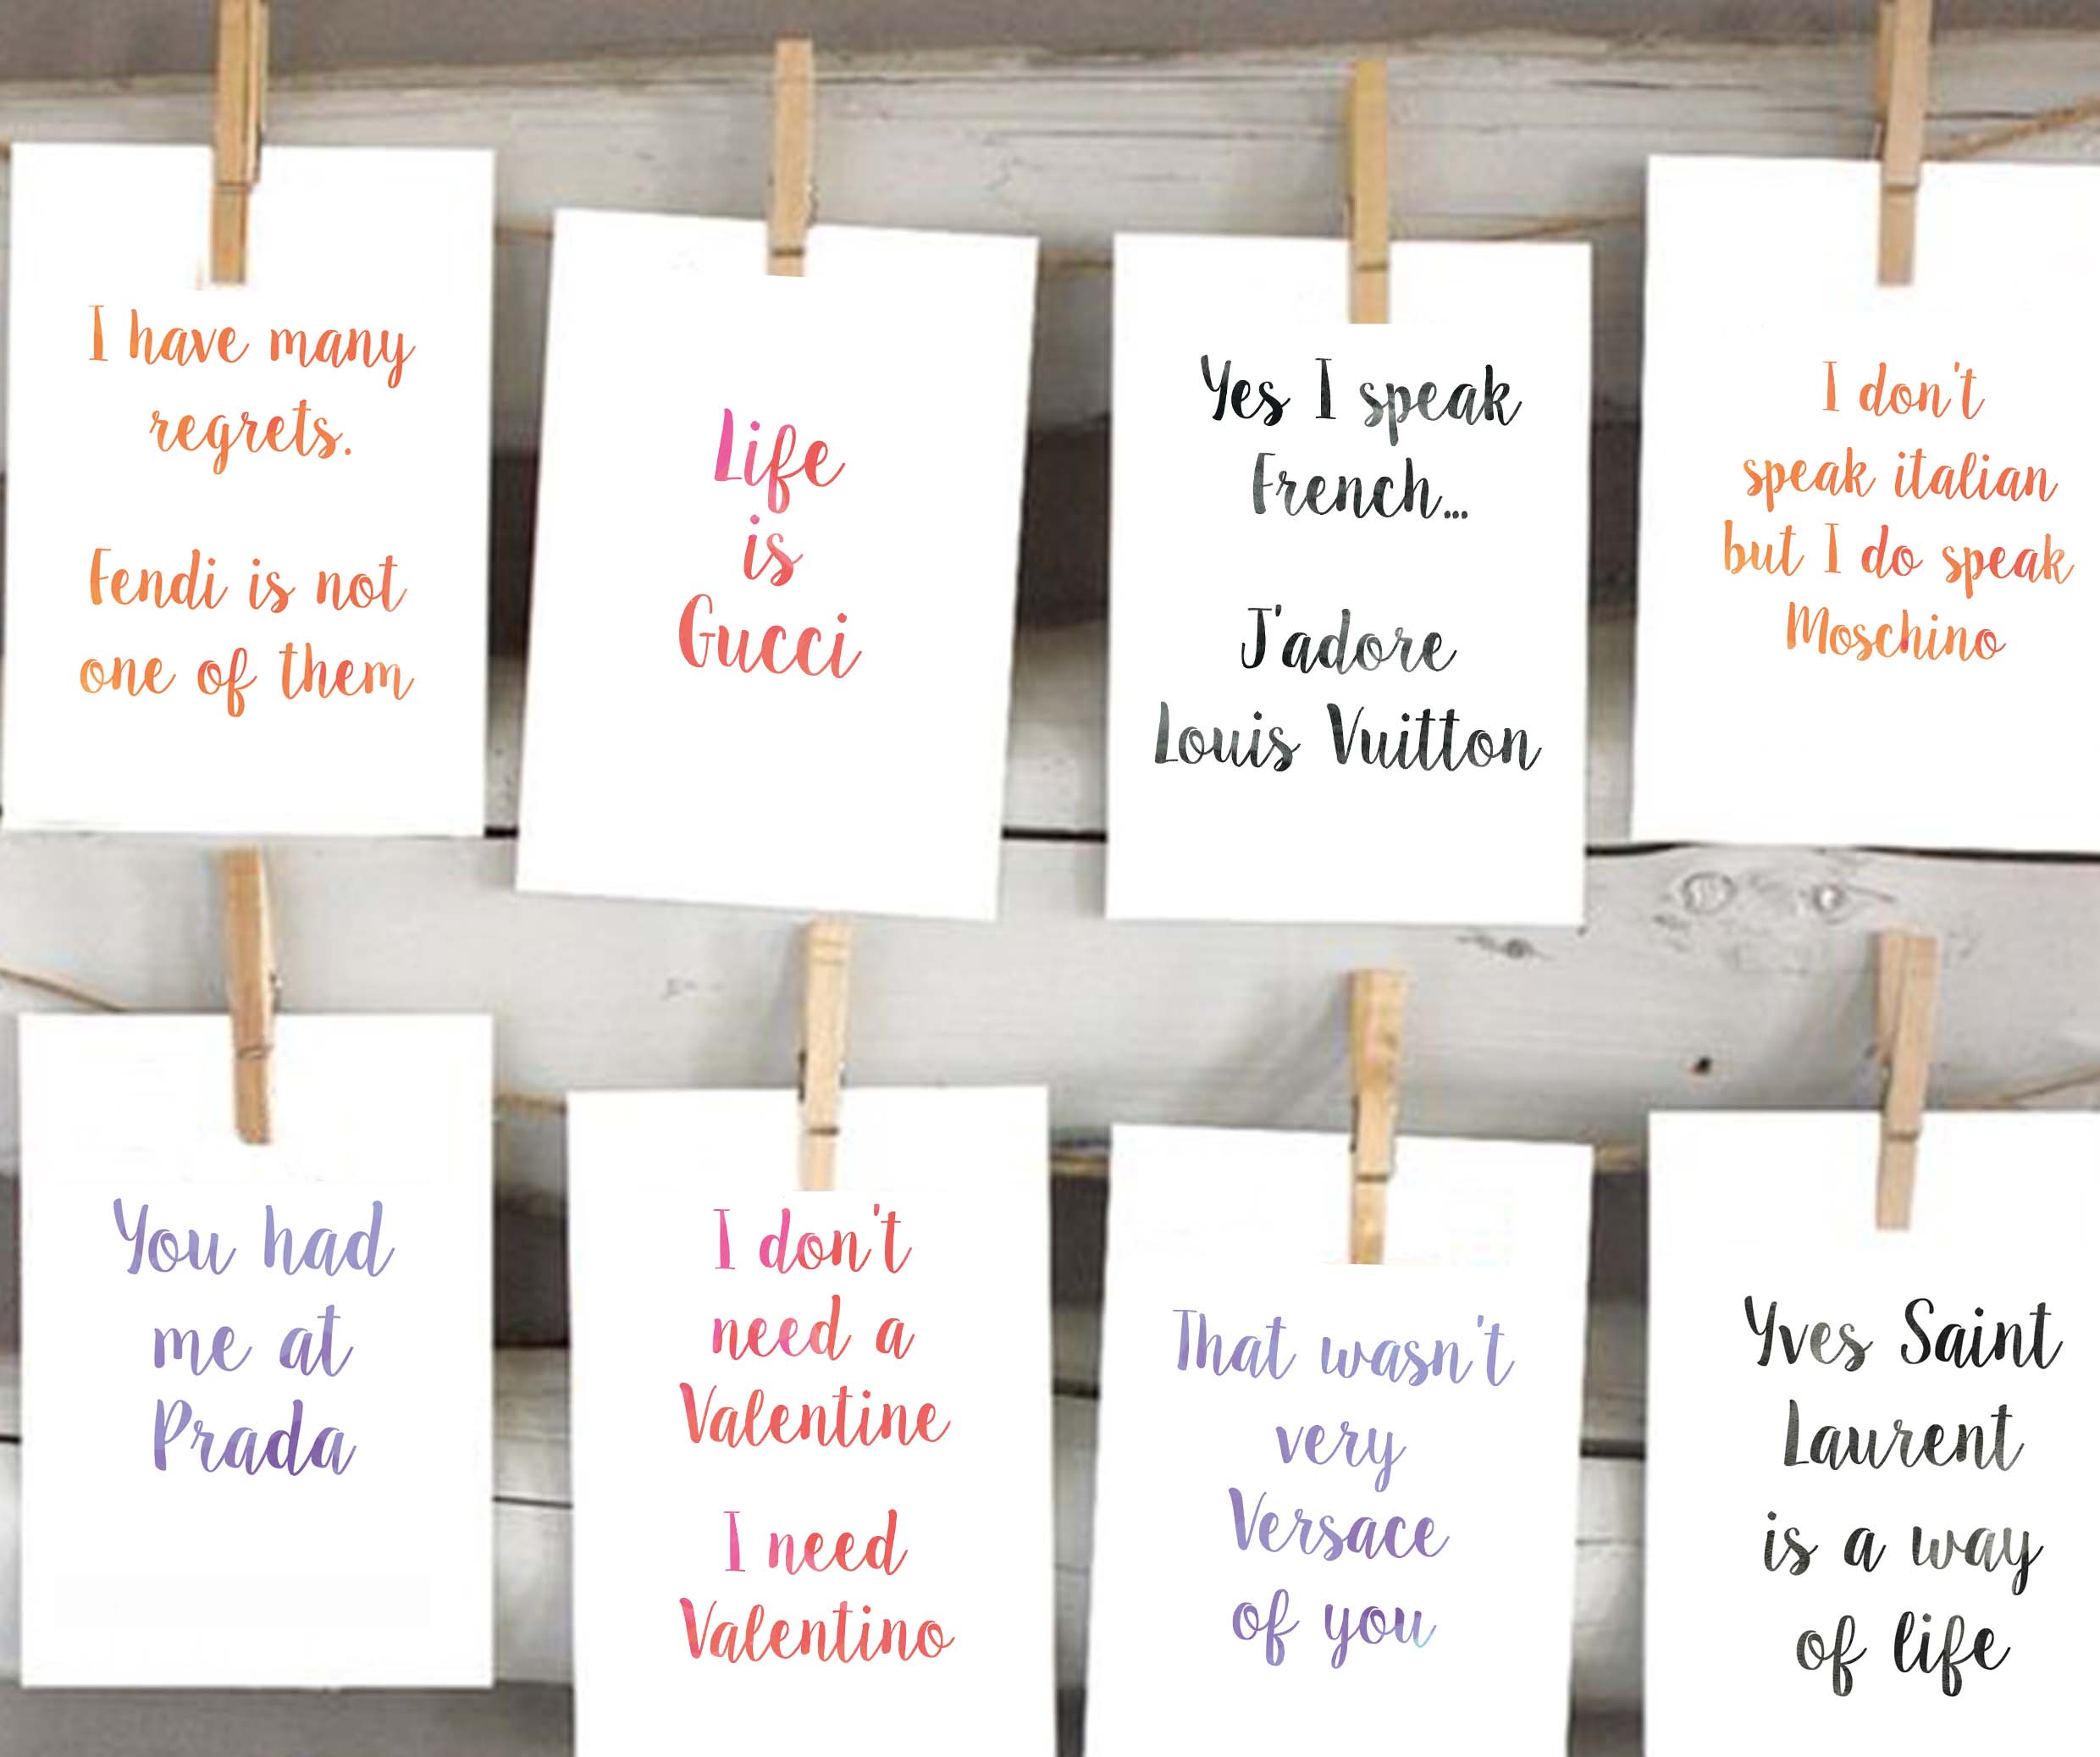 I have many
regrets.
Fendi is not
one of them
Life
is
Gucci
Yes I speak
French...
J'adore
Louis Vuitton
I don't
speak italian
but I do speak
Moschino
You had
me at
Prada
I don't
need a
Valentine
I need
Valentino
That wasn't
very
Versace
of you
Yves Saint
Laurent
is a way
of life